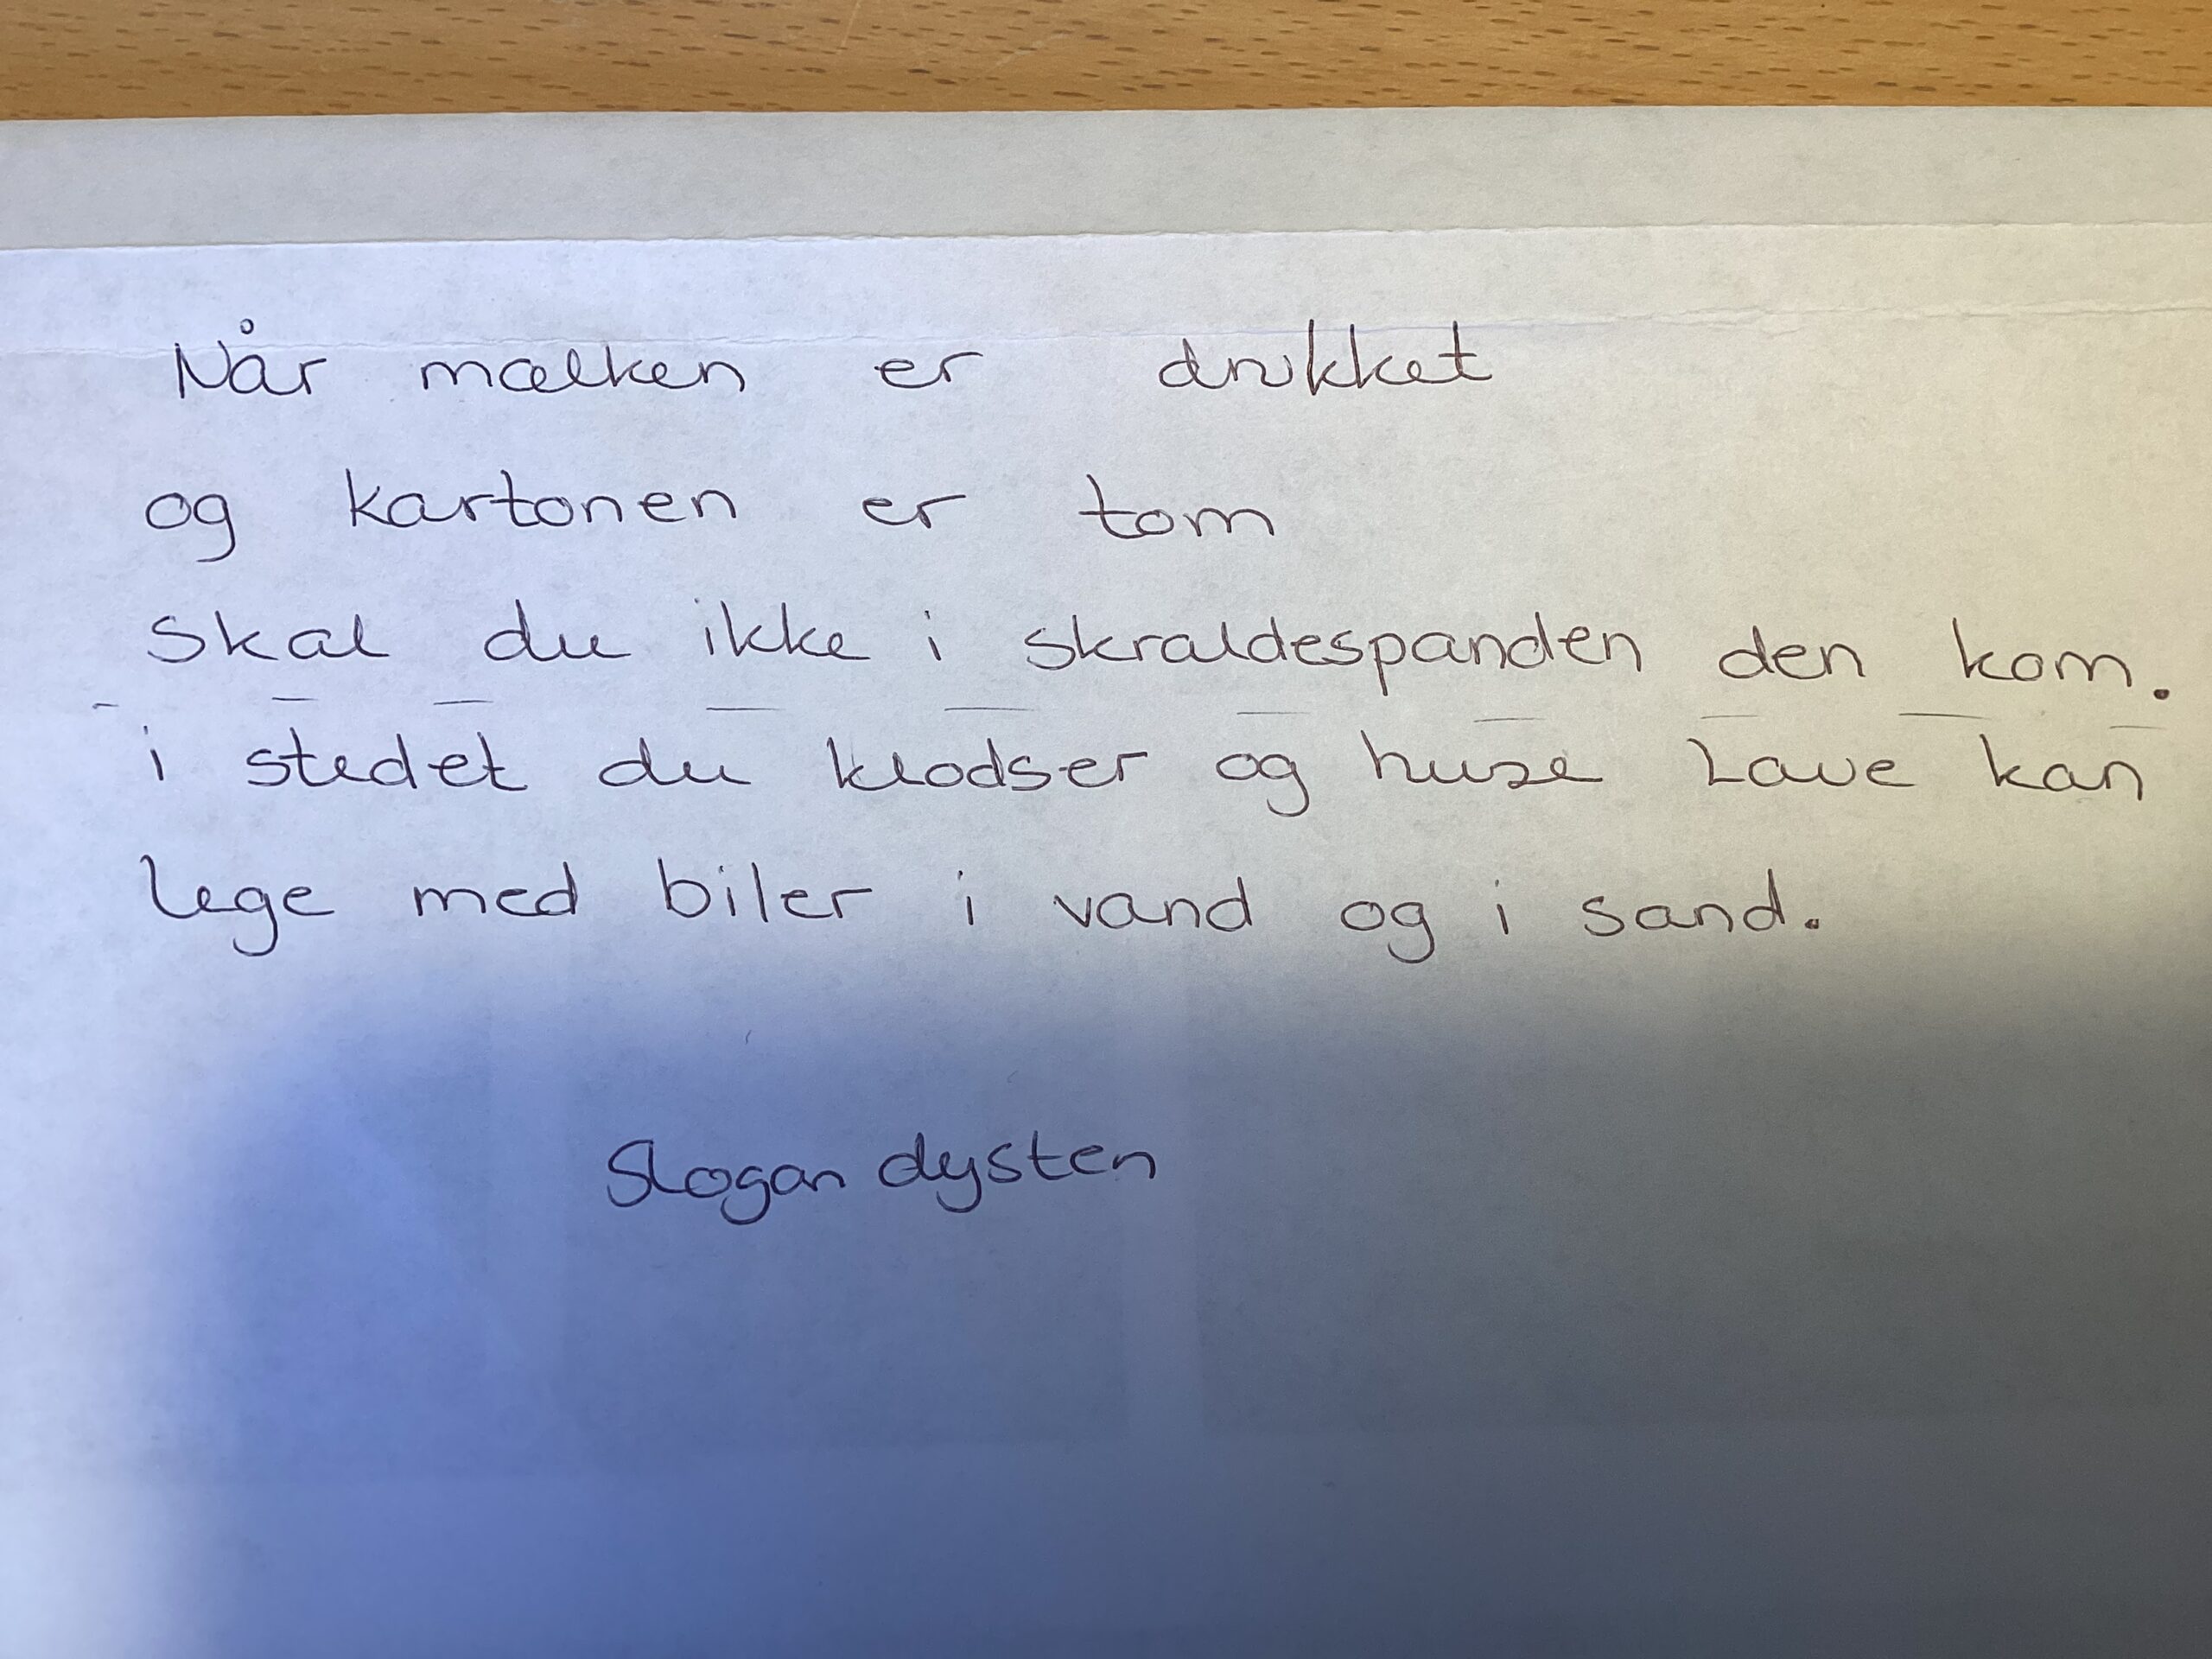 Når mælken er drukket
og kartonen er tom
skal du ikke i skraldespanden den kom.
i stedet du klodser og huse Lave kan
lege med biler i vand og i sand.
Slogan dysten